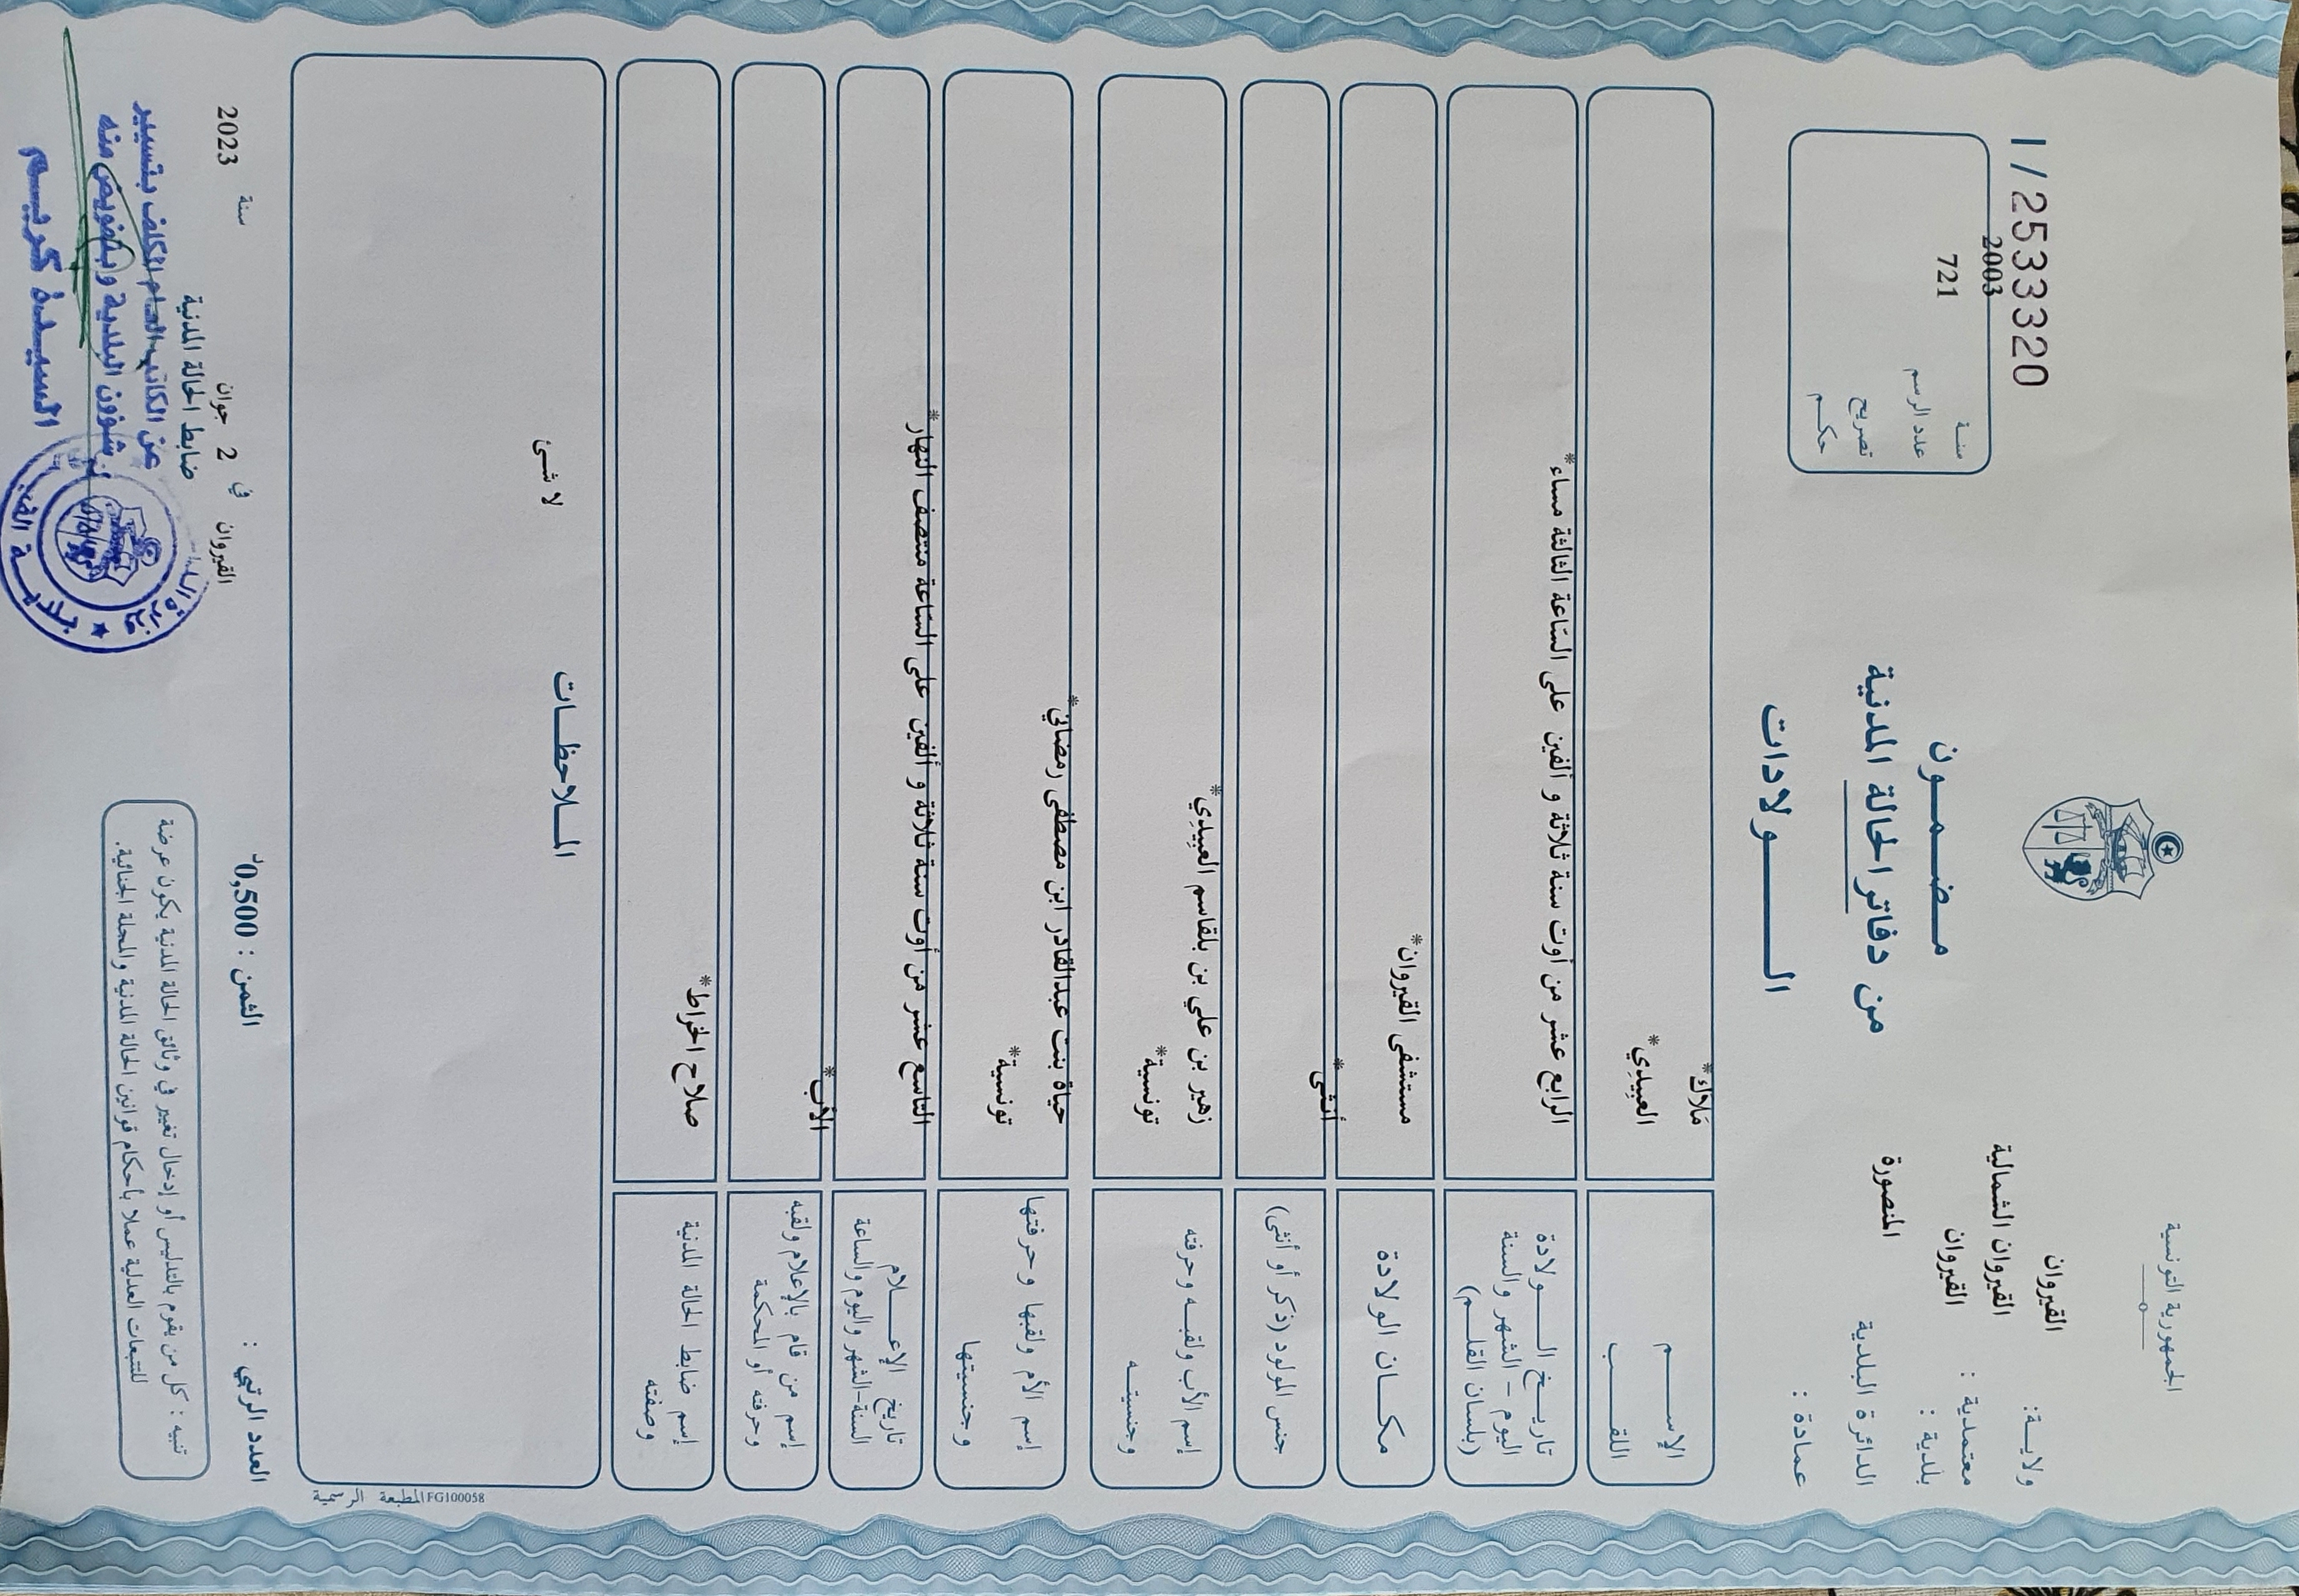 الجمهورية التونسية
ولاية: القيروان
معتمدية : القيروان الشمالية
بلدية : القيروان
الدائرة البلدية المنصورة
عمادة :
I/2533320
سنة 2003
عدد الرسم 721
تصريح
حكم
مضمون
من دفاتر الحالة المدنية
الولادات
الإسم
مَلَاك*
اللقب
العبيدي*
تاريخ الولادة
اليوم - الشهر والسنة
(بلسان القلم)
الرابع عشر من أوت سنة ثلاثة و ألفين على السّاعة الثالثة مساء*
مكان الولادة
مستشفى القيروان*
جنس المولود (ذكر أو أنثى)
أنثى*
إسم الأب ولقبه وحرفته
زهير بن علي بن بلقاسم العبيدي*
وجنسيته
تونسية*
إسم الأم ولقبها وحرفتها
حياة بنت عبدالقادر ابن مصطفى رمضاني*
وجنسيتها
تونسية*
تاريخ الإعلام
السنة-الشهر واليوم والساعة
التاسع عشر من أوت سنة ثلاثة و ألفين على السّاعة منتصف النهار*
إسم من قام بالإعلام ولقبه
وحرفته أو المحكمة
الأب*
إسم ضابط الحالة المدنية
وصفته
صلاح الخراط*
الملاحظات
لا شئ
المطبعة الرسمية FG100058
العدد الرتبي :
الثمن : 0,500د
القيروان في 2 جوان سنة 2023
ضابط الحالة المدنية
عن الكاتب العام المكلف بتسيير
شؤون البلدية وبتفويض منه
السيدة كريم
تنبيه : كل من يقوم بالتدليس أو إدخال تغيير في وثائق الحالة المدنية يكون عرضة
للتتبعات العدلية عملا بأحكام قوانين الحالة المدنية والمجلة الجنائية.